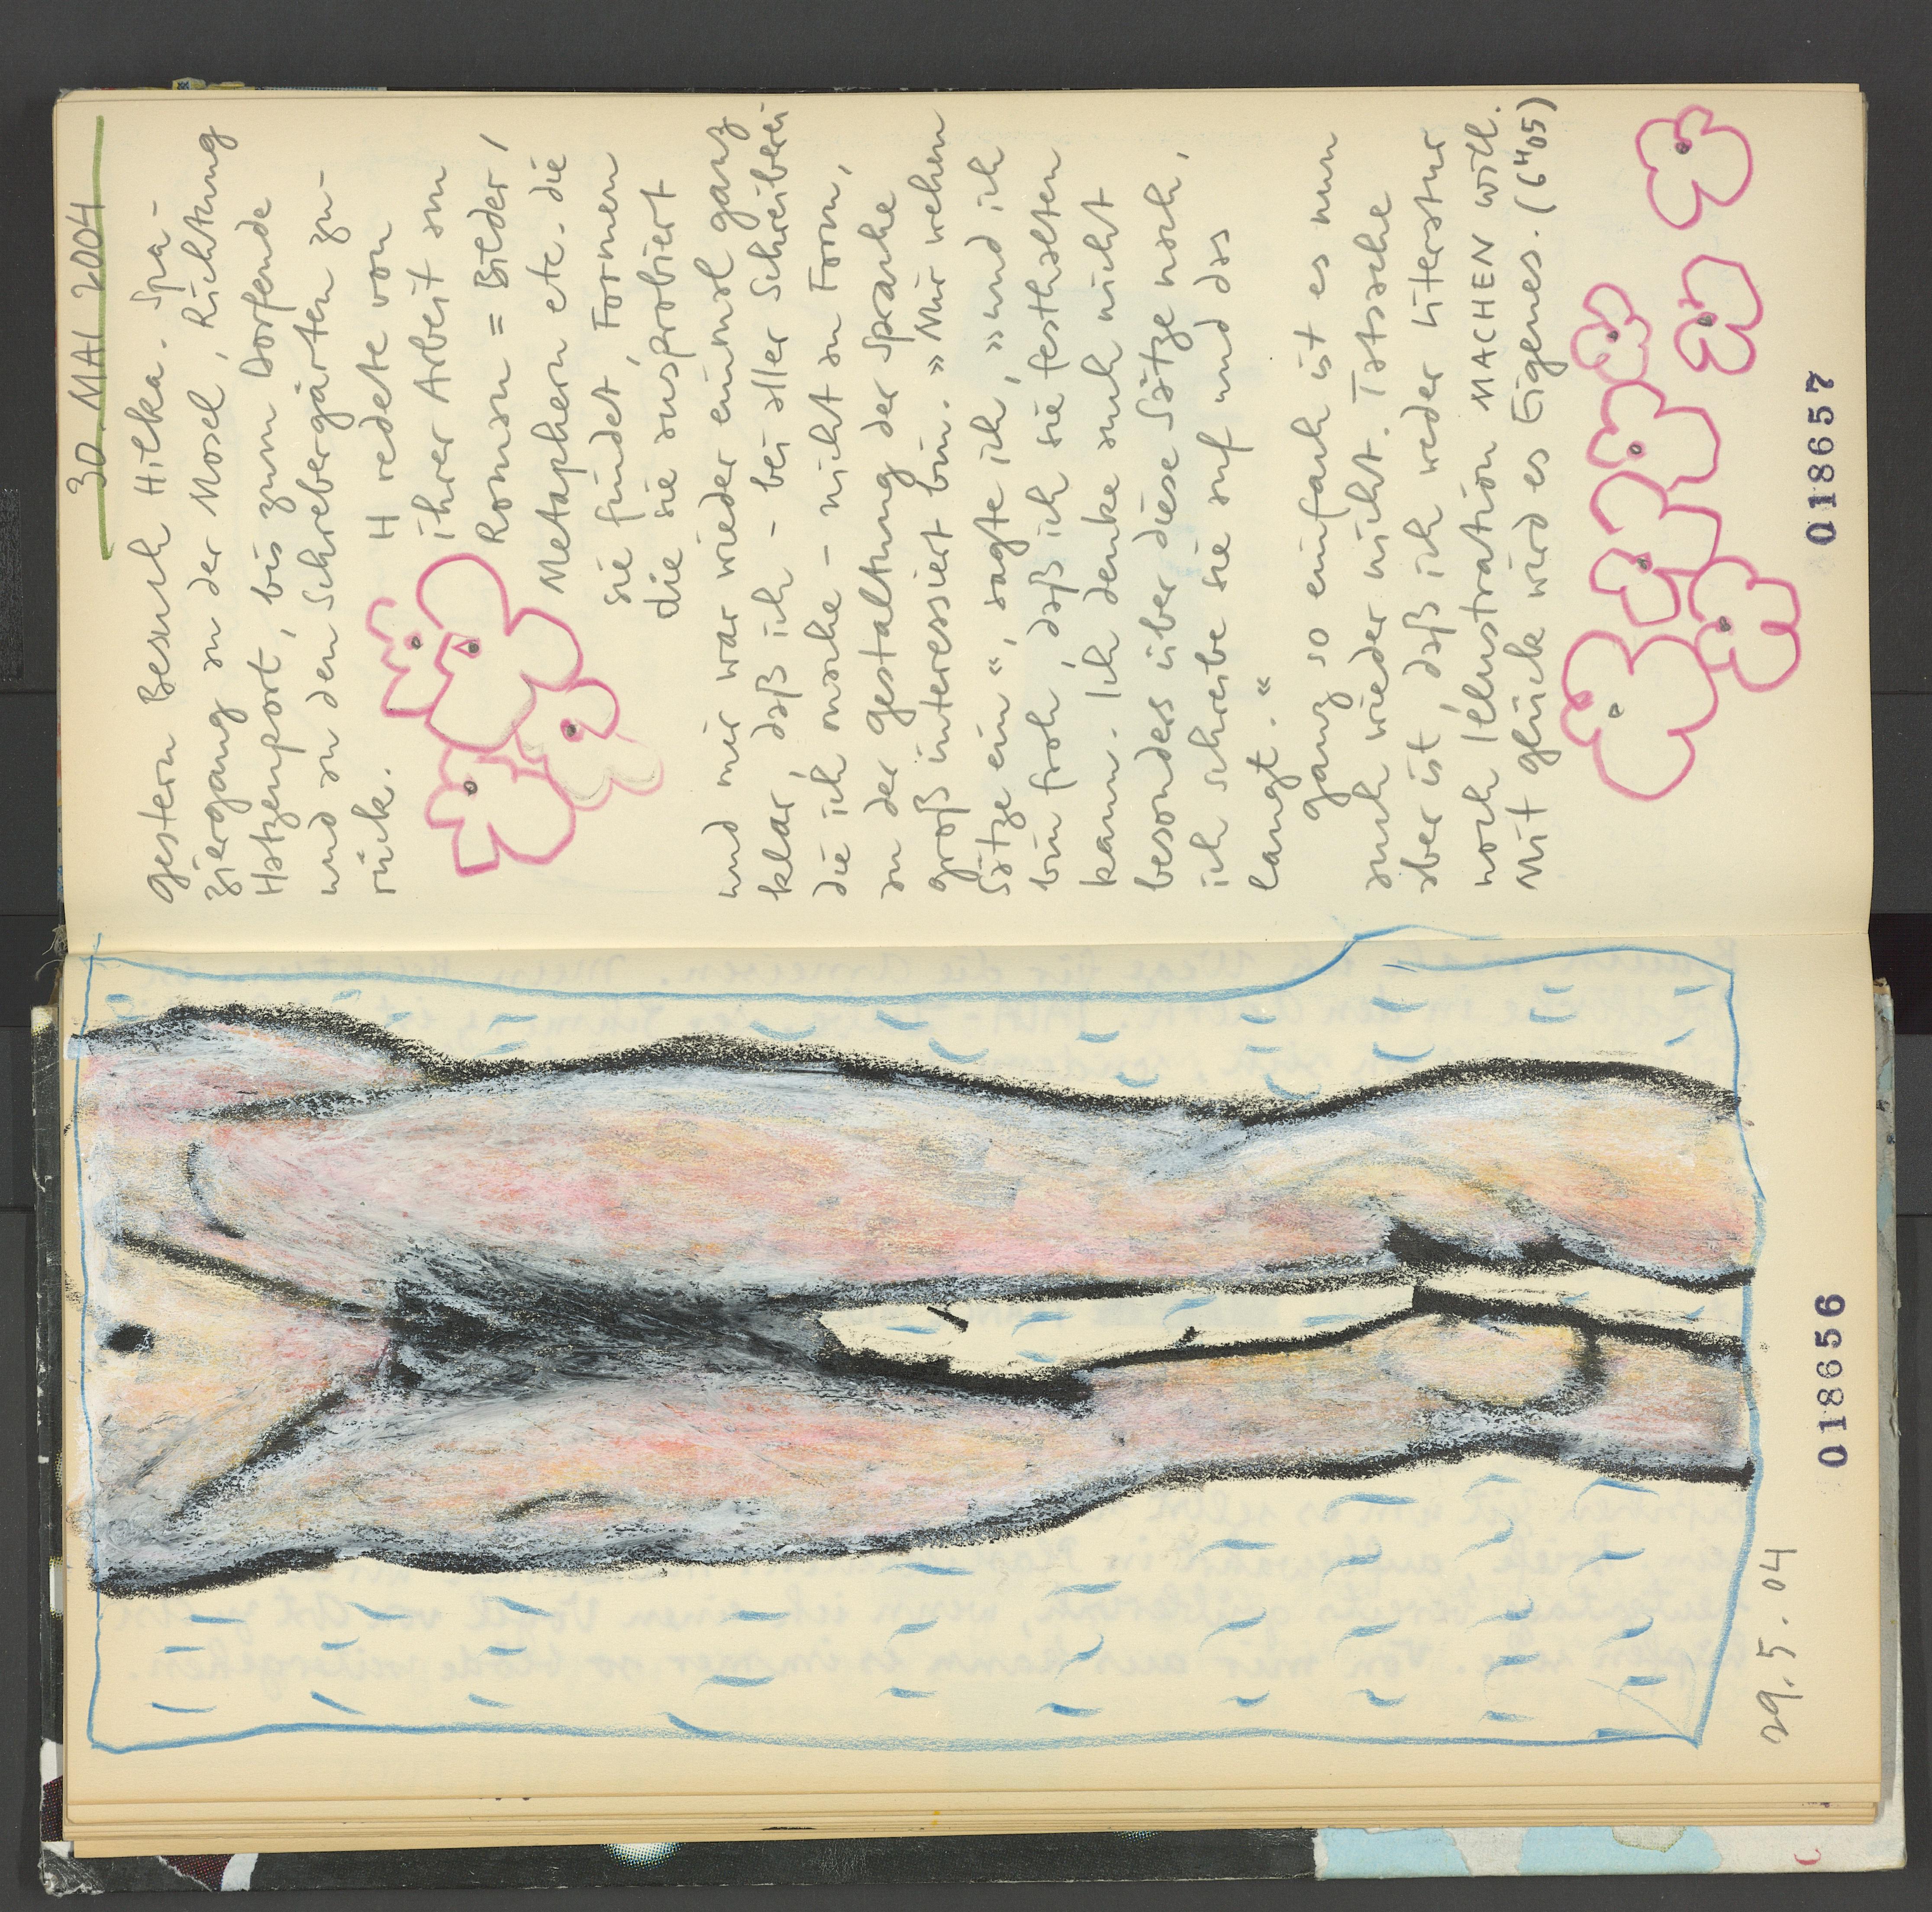 30. MAI 2004
Gestern Besuch Hilka. Spa-
ziergang an der Mosel, Richtung
Hatzenport, bis zum Dorfende
und an den Schrebergärten zu-
rück.
H redete von
ihrer Arbeit am
Roman = Bilder,
Metaphern etc. die
sie findet, Formen
die sie ausprobiert
und mir war wieder einmal ganz
klar, daß ich - bei aller Schreiberei
die ich mache - nicht an Form,
an der Gestaltung der Sprache
groß interessiert bin. »Mir wehen
Sätze ein«, sagte ich, »und ich
bin froh, daß ich sie festhalten
kann. Ich denke auch nicht
besonders über diese Sätze nach,
ich schreibe sie auf und das
langt.«
Ganz so einfach ist es nun
auch wieder nicht. Tatsache
aber ist, daß ich weder Literatur
noch Illustration MACHEN will.
Mit Glück wird es Eigenes. (6 H 05)
018657
29.5.04
018656